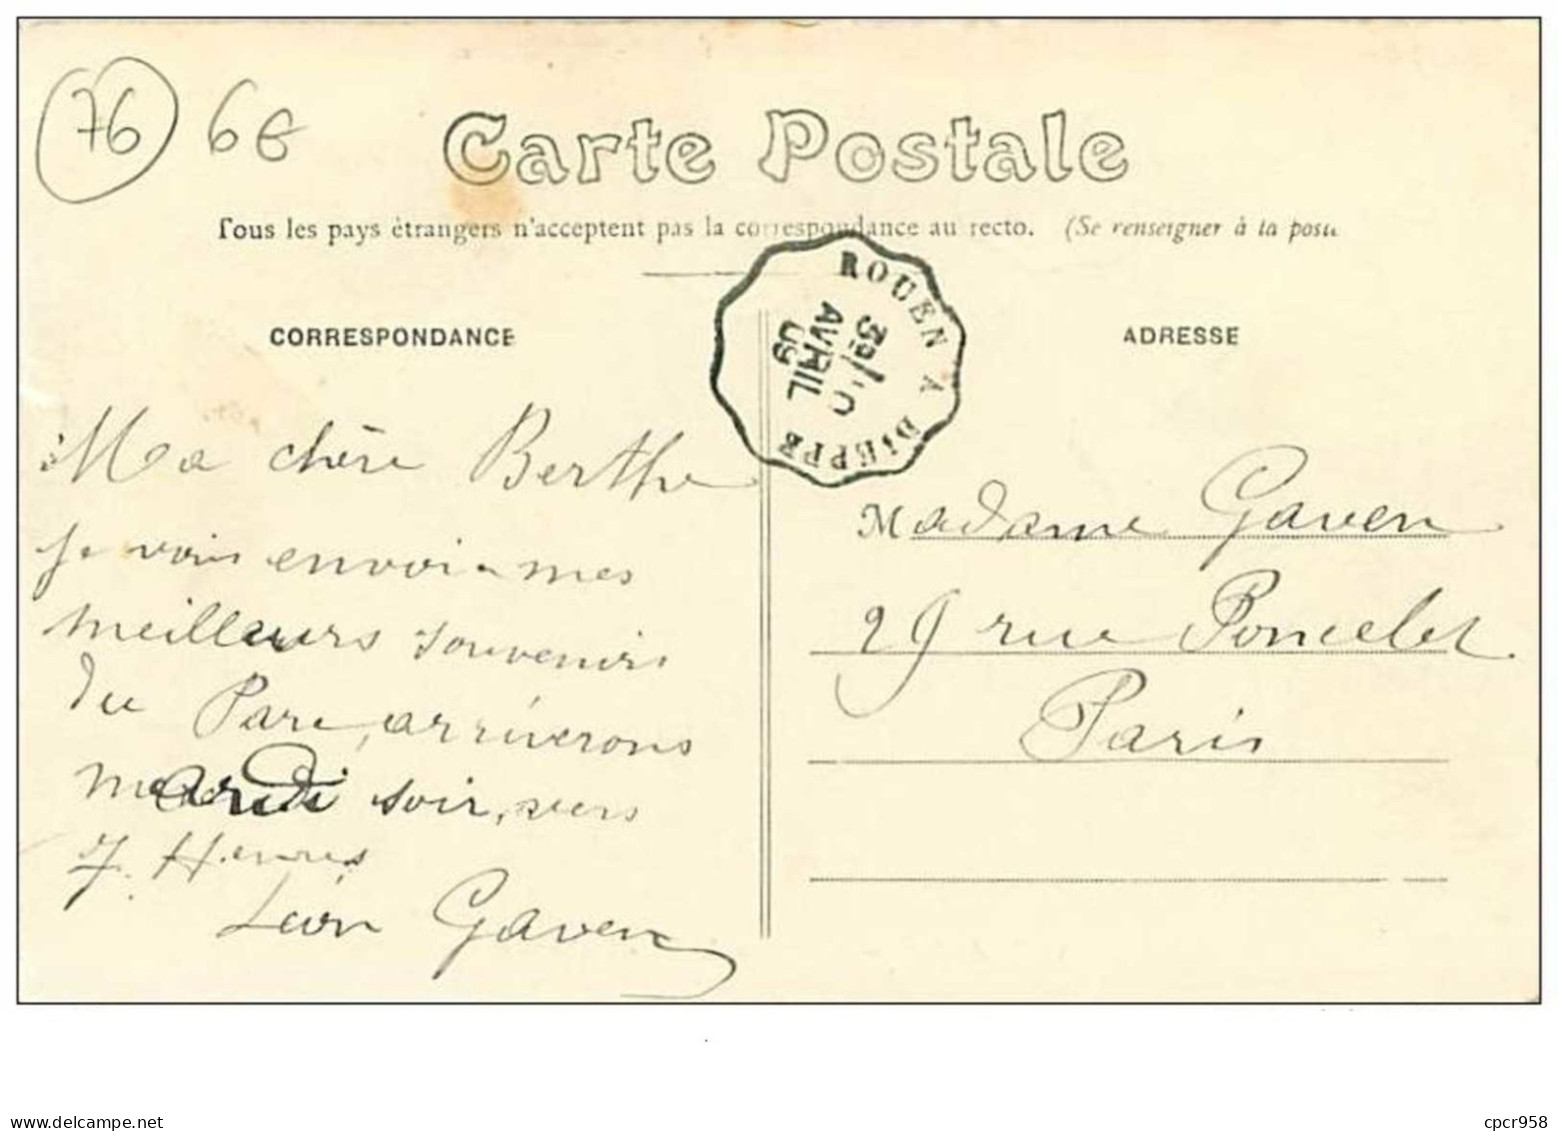 76 6€
Carte Postale
Tous les pays étrangers n'acceptent pas la correspondance au recto. (Se renseigner à la poste
ROUEN A DIEPPE
3e/
AVRIL
09
CORRESPONDANCE
ADRESSE
Ma chère Berthe
je vous envoi mes
meilleurs souvenirs
du Parc, arriverons
mardi soir, vers
7. Heures
Léon Gaven
Madame Gaven
29 rue Poncelet
Paris
www.delcampe.net
cpcr958